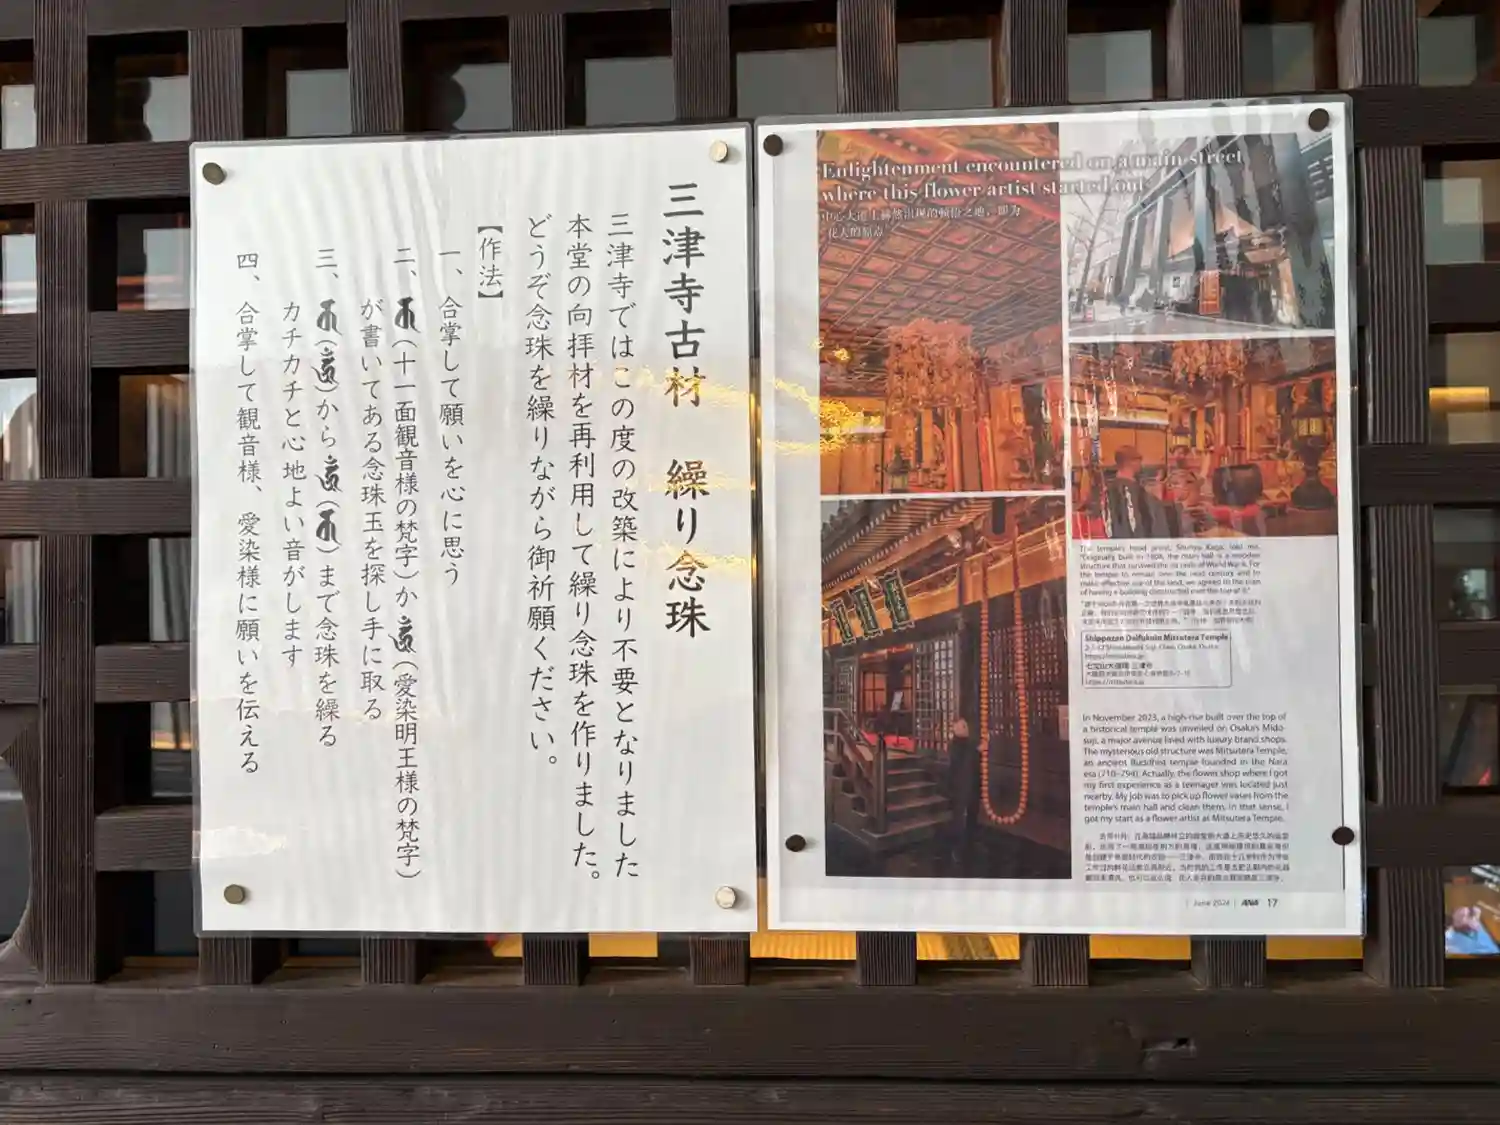 三津寺古材 繰り念珠
三津寺ではこの度の改築により不要となりました
本堂の向拝材を再利用して繰り念珠を作りました。
どうぞ念珠を繰りながら御祈願ください。
【作法】
一、合掌して願いを心に思う
二、(十一面観音様の梵字)か(愛染明王様の梵字)
が書いてある念珠玉を探し手に取る
三、()から()まで念珠を繰る
カチカチと心地よい音がします
四、合掌して観音様、愛染様に願いを伝える
Enlightenment encountered on a main street
where this flower artist started out
The temple's head priest, Shunyu Kaga, told me,
"Originally built in 1808, the main hall is a wooden
structure that survived the air raids of World War II. For
the temple to remain into the next century and to
make effective use of the land, we agreed to the plan
of having a building constructed over the top of it."
Shippozan Daifukuin Mitsutera Temple
七宝山大福院 三津寺
https://mitsutera.jp
In November 2023, a high-rise built over the top of
a historical temple was unveiled on Osaka's Mido-
suji, a major avenue lined with luxury brand shops.
The mysterious old structure was Mitsutera Temple,
an ancient Buddhist temple founded in the Nara
era (710–794). Actually, the flower shop where I got
my first experience as a teenager was located just
nearby. My job was to pick up flower vases from the
temple's main hall and clean them. In that sense, I
got my start as a flower artist at Mitsutera Temple.
| June 2024 | ANA 17